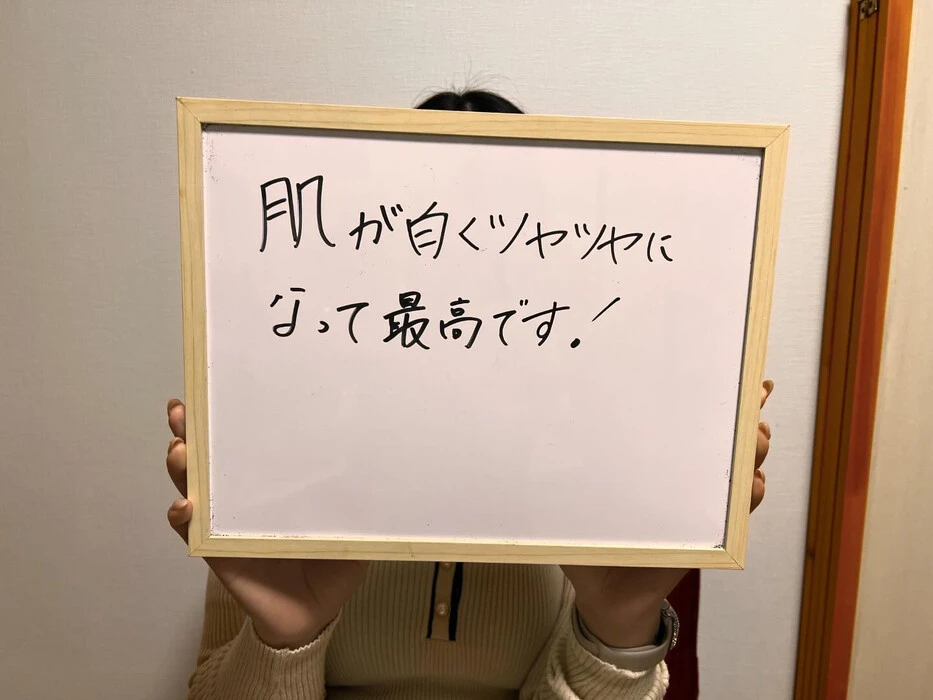 肌が白くツヤツヤに
なって最高です!